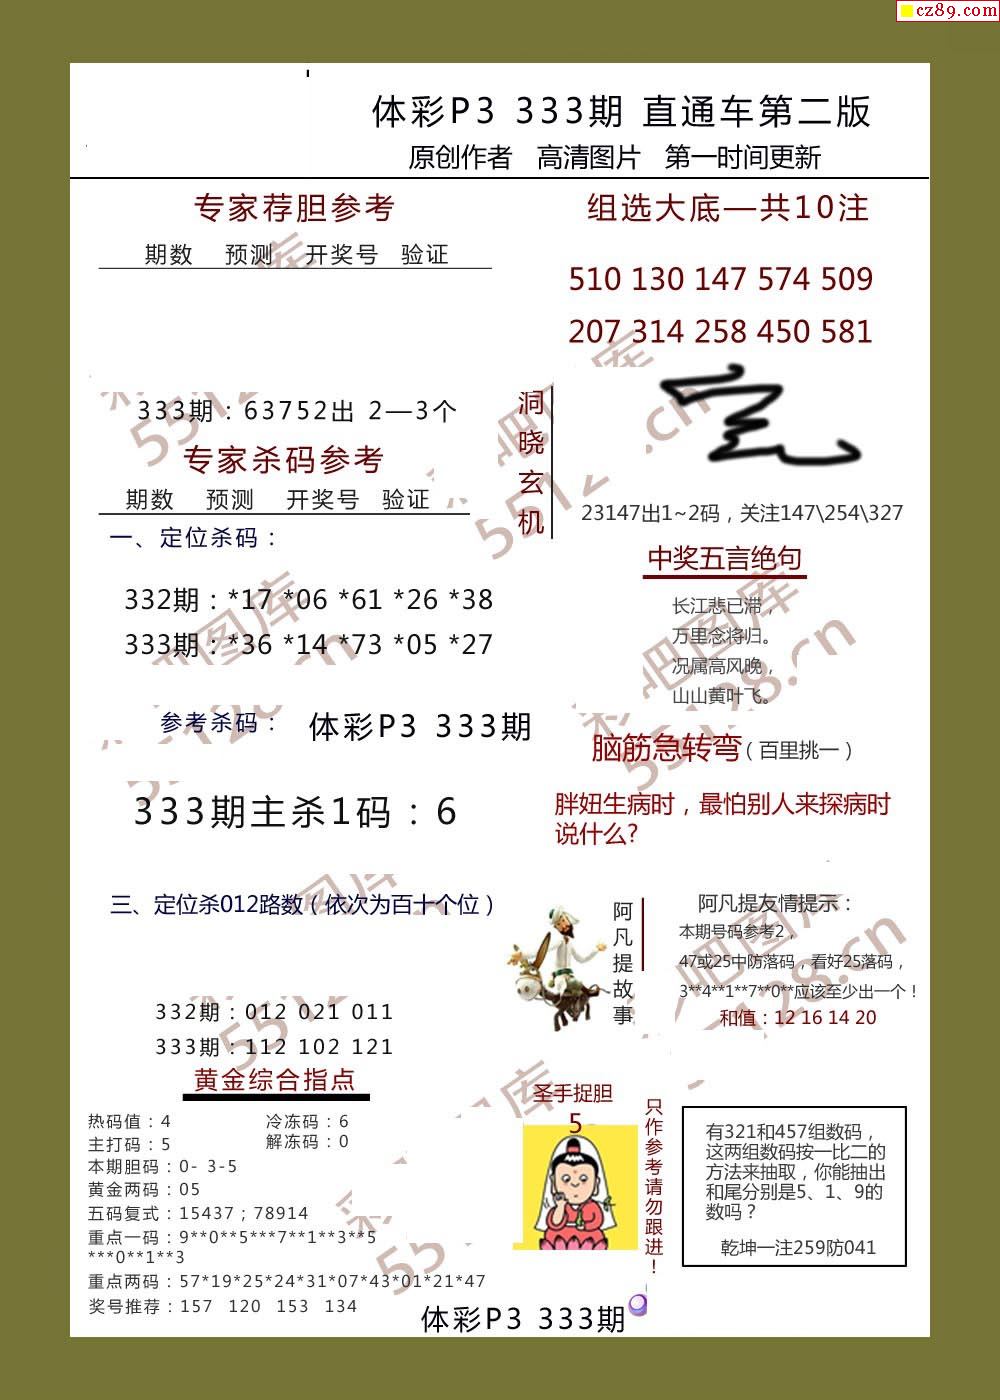 cz89.com
体彩P3 333期 直通车第二版
原创作者 高清图片 第一时间更新
专家荐胆参考
期数 预测 开奖号 验证
333期：63752出 2—3个
专家杀码参考
期数 预测 开奖号 验证
一、定位杀码：
332期：*17 *06 *61 *26 *38
333期：*36 *14 *73 *05 *27
参考杀码： 体彩P3 333期
333期主杀1码：6
三、定位杀012路数（依次为百十个位）
332期：012 021 011
333期：112 102 121
黄金综合指点
热码值：4 冷冻码：6
主打码：5 解冻码：0
本期胆码：0- 3-5
黄金两码：05
五码复式：15437；78914
重点一码：9**0**5***7**1**3**5
***0**1**3
重点两码：57*19*25*24*31*07*43*01*21*47
奖号推荐：157 120 153 134
组选大底—共10注
510 130 147 574 509
207 314 258 450 581
洞晓玄机
23147出1~2码，关注147\254\327
中奖五言绝句
长江悲已滞，
万里念将归。
况属高风晚，
山山黄叶飞。
脑筋急转弯（百里挑一）
胖妞生病时，最怕别人来探病时
说什么?
阿凡提故事
阿凡提友情提示：
本期号码参考2，
47或25中防落码，看好25落码，
3**4**1**7**0**应该至少出一个！
和值：12 16 14 20
圣手捉胆
5
只作参考请勿跟进！
有321和457组数码，
这两组数码按一比二的
方法来抽取，你能抽出
和尾分别是5、1、9的
数吗？
乾坤一注259防041
体彩P3 333期